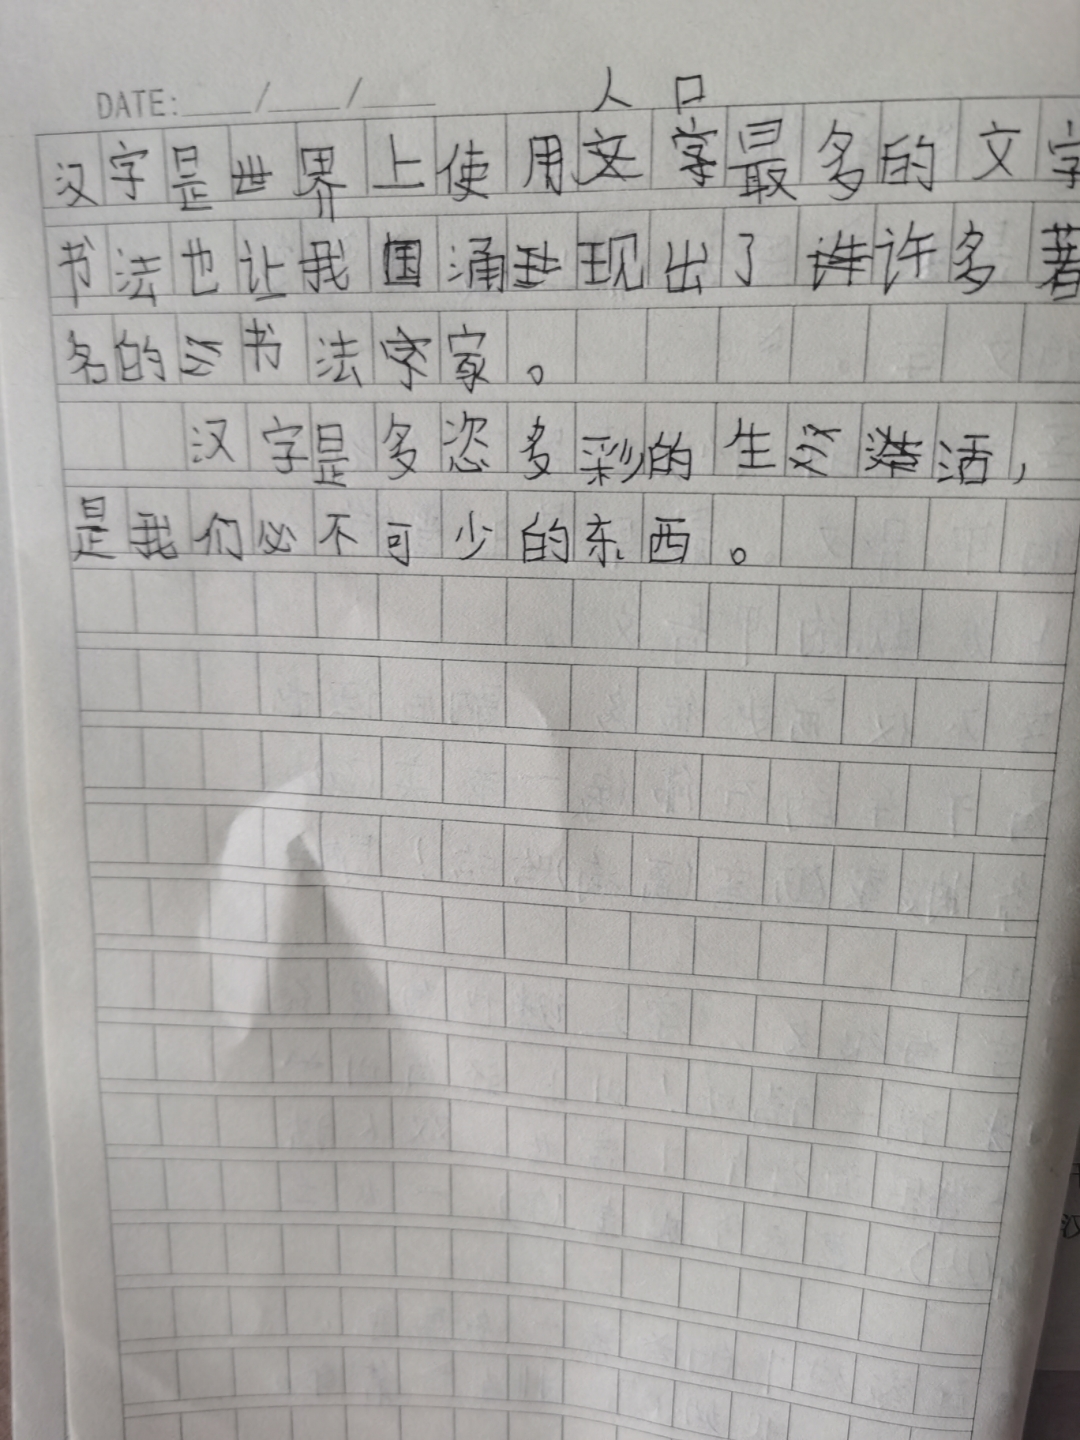 DATE: / /
人口
汉字是世界上使用最多的文字
书法也让我国涌现出了许多著
名的书法家。
汉字是多恣多彩的生活，
是我们必不可少的东西。
汉